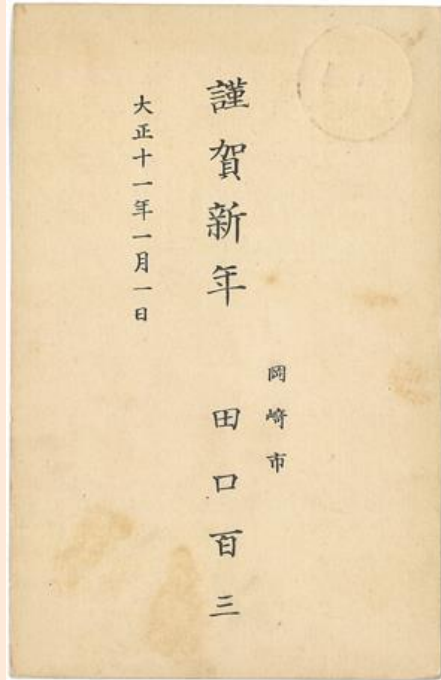 岡崎市
謹賀新年 田口百三
大正十一年一月一日